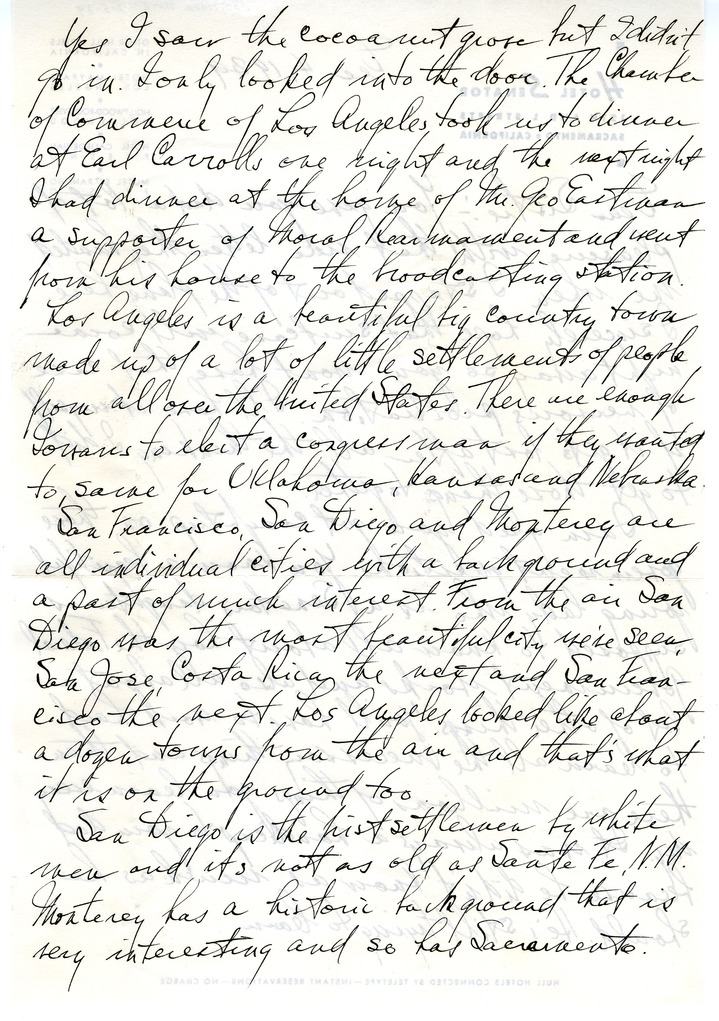 Yes I saw the cocoanut grove but I didn't
go in. I only looked into the door. The Chamber
of Commerce of Los Angeles took us to dinner
at Earl Carrolls one night and the next night
I had dinner at the home of Mr. Geo Eastman
a supporter of Moral Rearmament and went
from his house to the broadcasting station.
Los Angeles is a beautiful big country town
made up of a lot of little settlements of people
from all over the United States. There are enough
Iowans to elect a congressman if they wanted
to, same for Oklahoma, Kansas and Nebraska.
San Francisco, San Diego and Monterey are
all individual cities with a background and
a past of much interest. From the air San
Diego was the most beautiful city we've seen,
San Jose, Costa Rica, the next and San Fran-
cisco the next. Los Angeles looked like about
a dozen towns from the air and that's what
it is on the ground too.
San Diego is the first settlemen by white
men and it's not as old as Sante Fe, N.M.
Monterey has a historic background that is
very interesting and so has Sacramento.
HOTEL SENATOR
SACRAMENTO CALIFORNIA
HULL HOTELS CONNECTED BY TELETYPE—INSTANT RESERVATIONS—NO CHARGE